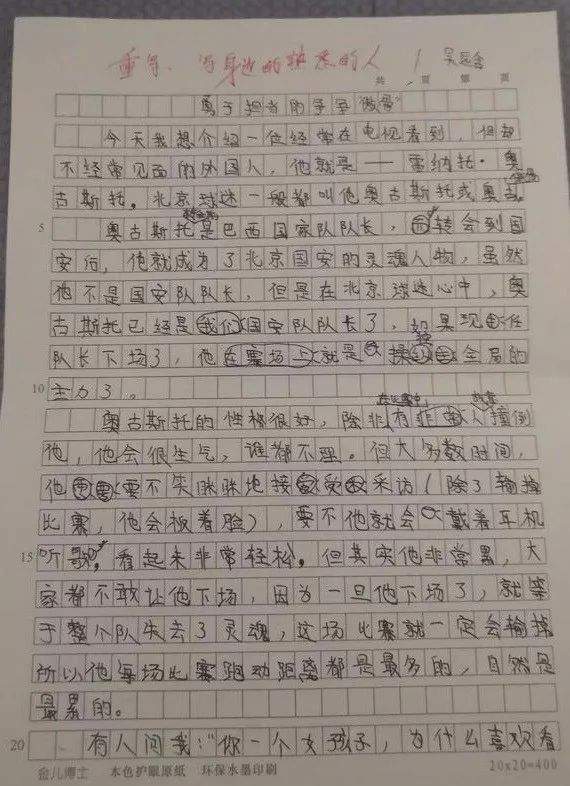 重写、写身边的熟悉的人
共 页 第 页
勇于担当的争字"傲骨"
今天我想介绍一位经常在电视看到,但却
不经常见面的外国人,他就是——雷纳托·奥
古斯托。北京球迷一般都叫他奥古斯托或奥古。
5
奥古斯托是巴西国家队队长,转会到国
安后,他就成为了北京国安的灵魂人物,虽然
他不是国安队队长,但是在北京球迷心中,奥
古斯托已经是我们国安队队长了,如果现任
队长下场了,他在赛场上就是操控全局的
10 主力了。
在比赛中
奥古斯托的性格很好,除非有人撞倒
他,他会很生气,谁都不理。但大多数时间,
他要不笑眯眯地接受采访(除了输掉
比赛,他会板着脸),要不他就会戴着耳机
15 听歌,看起来非常轻松。但其实他非常累,大
家都不敢让他下场,因为一旦他下场了,就等
于整个队失去了灵魂,这场比赛就一定会输掉
所以他每场比赛跑动距离都是最多的,自然是
最累的。
20 有人问我:"你一个女孩子,为什么喜欢看
金儿博士 本色护眼原纸 环保水墨印刷 20×20=400